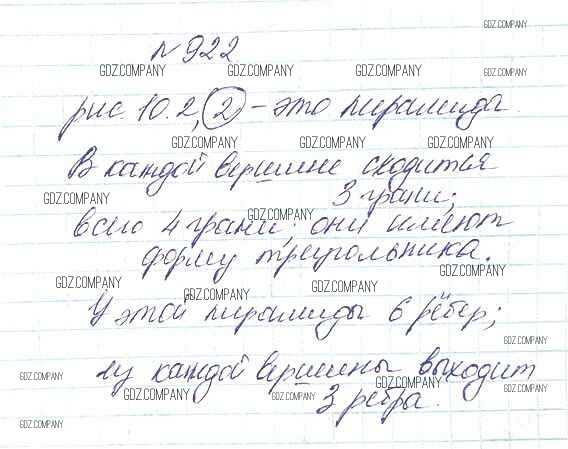 GDZ.COMPANY
N 922
GDZ.COMPANY GDZ.COMPANY GDZ.COMPANY GDZ.COMPANY
рис. 10.2, 2 - это пирамида.
GDZ.COMPANY GDZ.COMPANY GDZ.COMPANY
В каждой вершине сходится
GDZ.COMPANY 3 грани;
GDZ.COMPANY
всего 4 грани; они имеют
форму треугольника.
GDZ.COMPANY
GDZ.COMPANY GDZ.COMPANY GDZ.COMPANY
У этой пирамиды 6 рёбер;
GDZ.COMPANY
из каждой вершины выходит
GDZ.COMPANY GDZ.COMPANY GDZ.COMPANY
GDZ.COMPANY GDZ.COMPANY
3 ребра.
GDZ.COMPANY